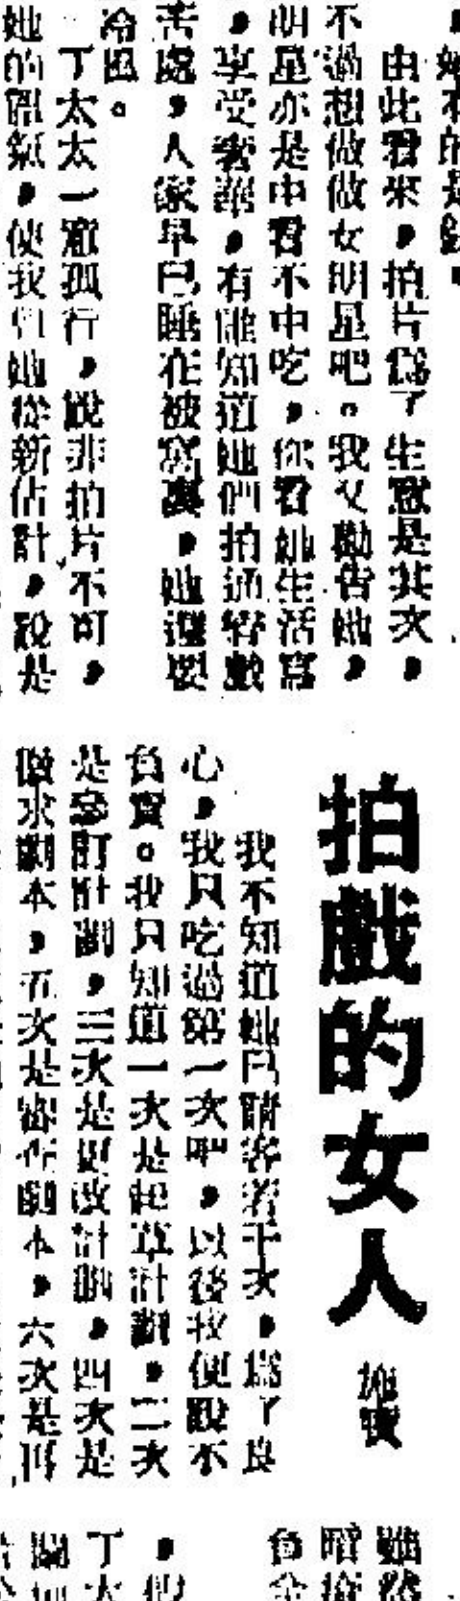 由此看來，拍片爲了生意是其次，
不過想做做女明星吧。我又勸告她，
明星亦是中看不中吃，你看她生活寫
，享受奢華，有誰知道她們拍通宵戲
苦處，人家早已睡在被窩裏，她還要
冷風。
丁太太一意孤行，說非拍片不可，
她的語氣，使我對她從新估計，說是
拍戲的女人
施寶
我不知道她已請客若干次，爲了良
心，我只吃過第一次吧，以後我便說不
負責。我只知道一次是起草計劃，二次
是參訂計劃，三次是更改計劃，四次是
徵求劇本，五次是審查劇本，六次是再
雖然
暗
丁太